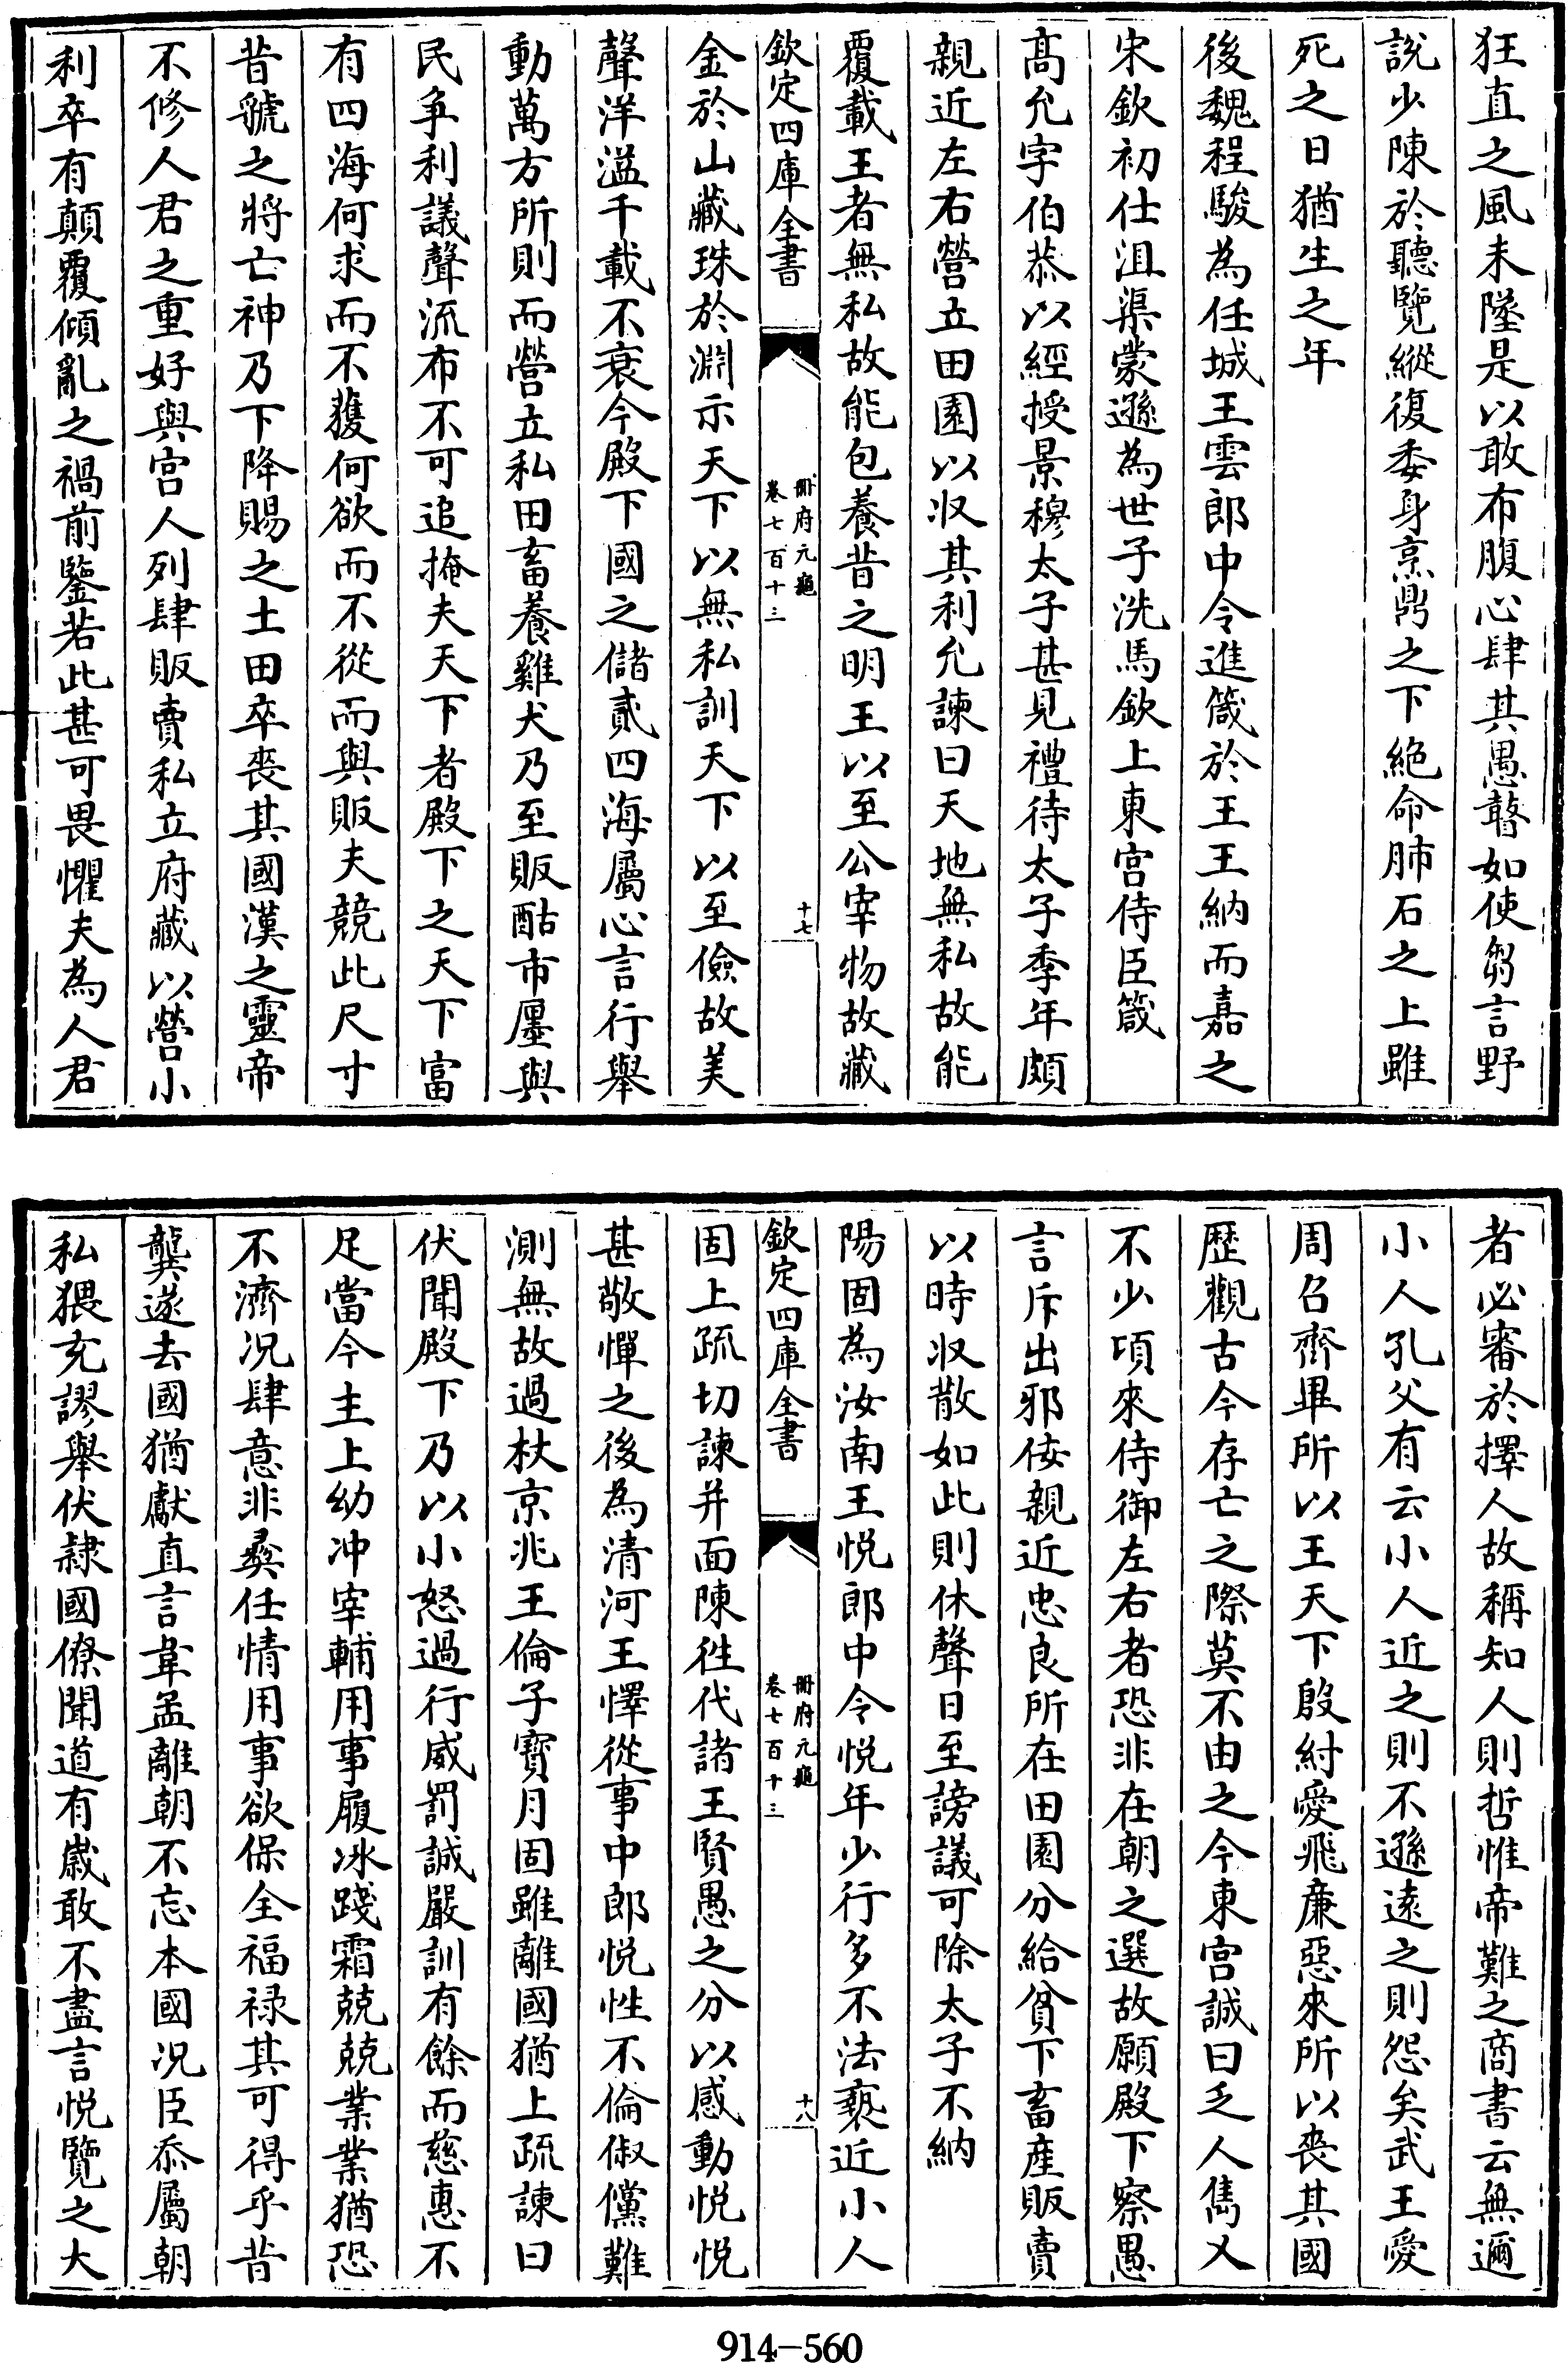 狂直之風未墜是以敢布腹心肆其愚瞽如使芻言野
説少陳於聽覽縱復委身烹鼎之下絶命肺石之上雖
死之日猶生之年
後魏程駿為任城王雲郎中令進箴於王王納而嘉之
宋欽初仕沮渠蒙遜為世子洗馬欽上東宫侍臣箴
髙允字伯恭以經授景穆太子甚見禮待太子季年頗
親近左右營立田園以收其利允諫曰天地無私故能
覆載王者無私故能包養昔之明王以至公宰物故藏
欽定四庫全書
冊府元龜
卷七百十三
十七
金於山藏珠於淵示天下以無私訓天下以至儉故美
聲洋溢千載不衰今殿下國之儲貳四海屬心言行舉
動萬方所則而營立私田畜養雞犬乃至販酤市㕓與
民争利議聲流布不可追掩夫天下者殿下之天下富
有四海何求而不獲何欲而不從而與販夫競此尺寸
昔虢之將亡神乃下降賜之土田卒喪其國漢之靈帝
不修人君之重好與宫人列肆販賣私立府藏以營小
利卒有顛覆傾亂之禍前鑒若此甚可畏懼夫為人君
者必審於擇人故稱知人則哲惟帝難之商書云無邇
小人孔父有云小人近之則不遜逺之則怨矣武王愛
周召齊畢所以王天下殷紂愛飛廉惡來所以喪其國
歴觀古今存亡之際莫不由之今東宫誠曰乏人雋乂
不少頃來侍御左右者恐非在朝之選故願殿下察愚
言斥出邪佞親近忠良所在田園分給貧下畜産販賣
以時收散如此則休聲日至謗議可除太子不納
陽固為汝南王悦郎中令悦年少行多不法䙝近小人
欽定四庫全書
冊府元龜
卷七百十三
十八
固上疏切諫并面陳徃代諸王賢愚之分以感動悦悦
甚敬憚之後為清河王懌從事中郎悦性不倫俶儻難
測無故過杖京兆王倫子寳月固雖離國猶上疏諫曰
伏聞殿下乃以小怒過行威罰誠嚴訓有餘而慈惠不
足當今主上幼冲宰輔用事履冰踐霜兢兢業業猶恐
不濟况肆意非彛任情用事欲保全福禄其可得乎昔
龔遂去國猶獻直言韋孟離朝不忘本國况臣忝屬朝
私猥充謬舉伏隷國僚聞道有歲敢不盡言悦覽之大
914-560